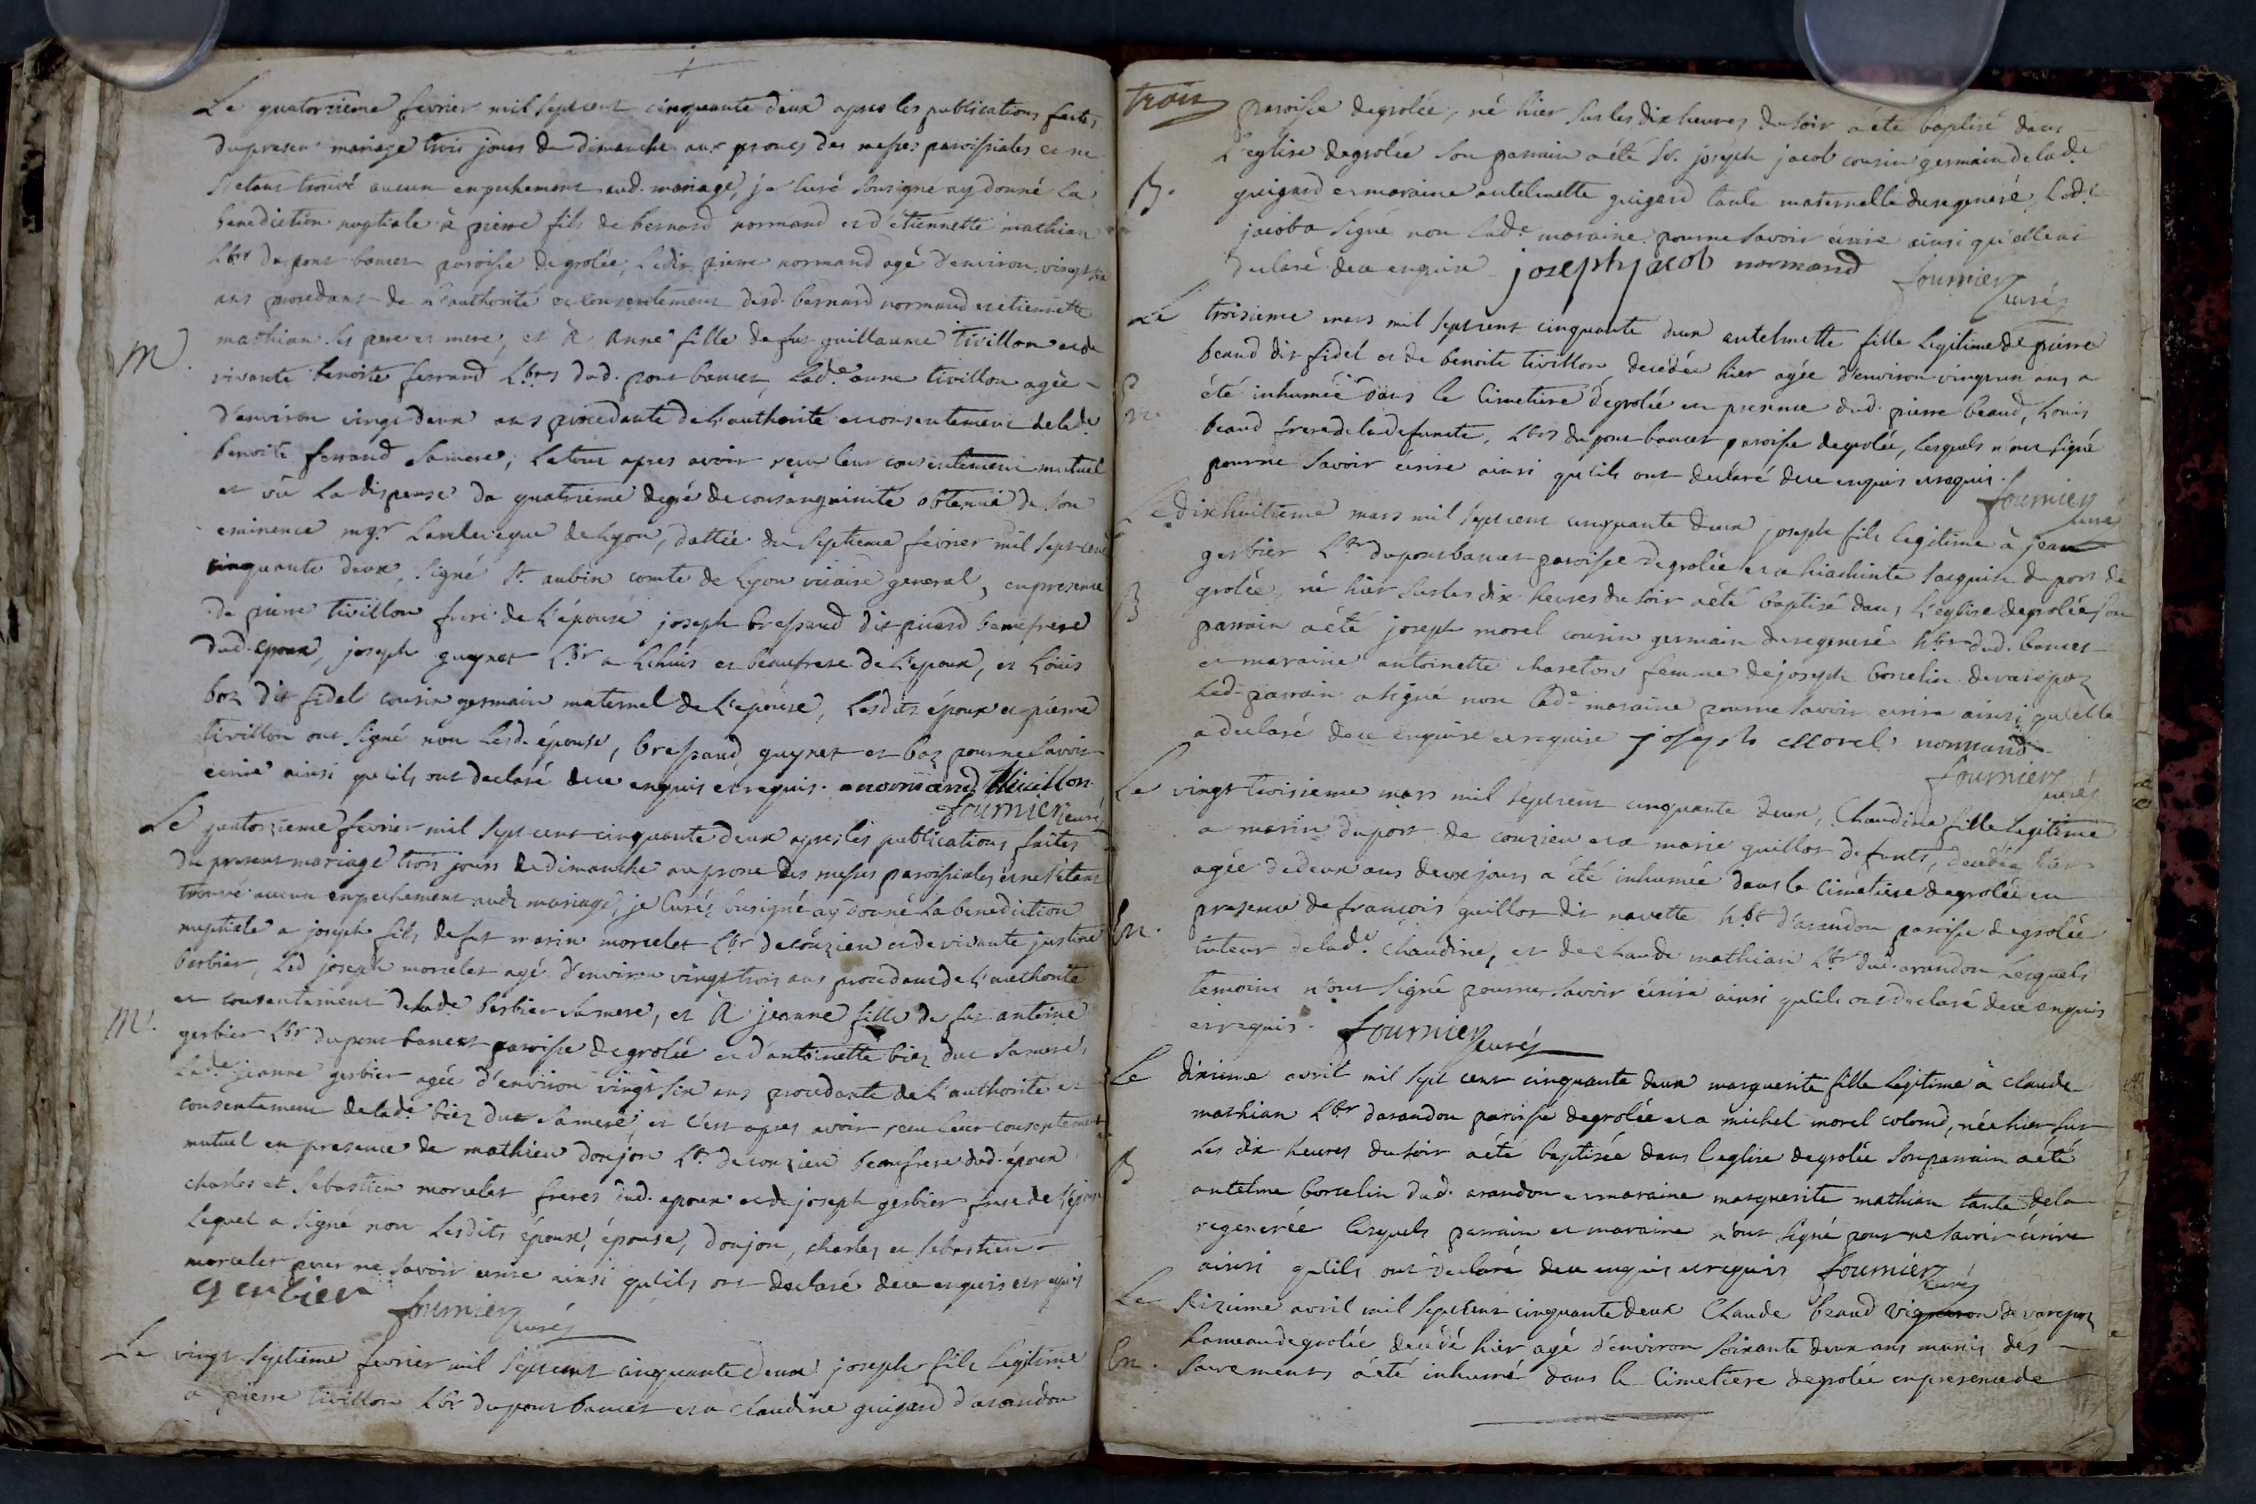 Le quatorzieme fevrier mil sept cent cinquante deux apres les publications faites
du present mariage trois jours de dimanche aux prones des messes paroissiales et ne
s'etant trouvé aucun empechement aud. mariage, je curé sousigné ay donné la
benediction nuptiale à pierre fils de bernard normand et d'étiennette mathian
hbr du pont bancet paroisse de grolée, ledit pierre normand agé d'environ vingt
ans procedant de l'authorité et consentement desd. bernard normand et etiennette
mathian ses pere et mere, et à anne fille de fut guillaume tivillon et de
M.
vivante benoite ferrand hbrs dud. pont bancet, lade anne tivillon agée
d'environ vingt deux ans procedante de l'authorité et consentement de lade
benoite ferrand sa mere, le tout apres avoir reçu leur consentement mutuel
et vû la dispense du quatrieme degré de consanguinité obtenuë de son
eminence mgr l'archeveque de Lyon, dattée du septieme fevrier mil sept cent
cinquante deux, signé st aubin comte de Lyon vicaire general, en presence
de pierre tivillon frere de l'épouse joseph bressand dit picard beaufrere
dud. epoux, joseph guynet hbr a Lhuis et beaufrere de l'epoux, et Loüis
boz dit fidel cousin germain maternel de l'epouse, lesdits époux et pierre
tivillon ont signé non lesd. épouse, bressand, guynet et boz pour ne savoir
ecrire ainsi qu'ils ont declaré de ce enquis et requis. normand tivillon
fournier curé
Le quatorzieme fevrier mil sept cent cinquante deux apres les publications faites
du present mariage trois jours de dimanche au prone des messes paroissiales et ne s'étant
trouvé aucun empechement aud. mariage, je curé sousigné ay donné la benediction
nuptiale a joseph fils de fut marin morcelet hbr de couzieu et de vivante justine
barbier, led joseph morcelet agé d'environ vingt trois ans procedant de l'authorité
et consentement de lade barbier sa mere, et à jeanne fille de fut antoine
M.
gerbier hbr du pont bancet paroisse de grolée et d'antoinette biez duc sa mere,
lade jeanne gerbier agée d'environ vingt six ans procedante de l'authorité et
consentement de lade biez duc sa mere, et c'est apres avoir reçu leur consentement
mutuel en presence de mathieu donjon hbr de couzieu beaufrere dud. époux
charles et sebastien morcelet freres dud. epoux et de joseph gerbier frere de l'epouse
lequel a signé non lesdits époux, épouse, donjon, charles et sebastien
morcelet pour ne savoir ecrire ainsi qu'ils ont declaré de ce enquis et requis
gerbier fournier curé
Le vingt septieme fevrier mil sept cent cinquante deux joseph fils legitime
a pierre tivillon hbr du pont bancet et a claudine guigard d'arandon
trois
paroisse de grolée, né hier sur les dix heures du soir a été baptisé dans
l'eglise de grolée son parrain a été Sr. joseph jacob cousin germain de lade
B.
guigard et maraine antelmette guigard tante maternelle du regeneré, led.
jacob a signé non lade maraine pour ne savoir écrire ainsi qu'elle a
declaré de ce enquise joseph jacob normand
fournier curé
Le troisieme mars mil sept cent cinquante deux antelmette fille legitime de pierre
beaud dit fidel et de benoite tivillon decedée hier agée d'environ vingt un ans a
En.
été inhumée dans le cimetiere de grolée en presence dud. pierre beaud, Louis
beaud frere de la defuncte, hbrs du pont bancet, paroisse de grolée, lesquels n'ont signé
pour ne savoir écrire ainsi qu'ils ont declaré de ce enquis et requis.
fournier curé
Le dixhuitieme mars mil sept cent cinquante deux joseph fils legitime à jean
gerbier hbr du pont bancet paroisse de grolée et a hiachinte du port de
B
grolée, né hier sur les dix heures du soir a été baptisé dans l'eglise de grolée son
parrain a été joseph morel cousin germain du regeneré hbr dud. bancet
et maraine antoinette charetton femme de joseph borcelin de varepoz
led. parrain a signé non lade maraine pour ne savoir ecrire ainsi qu'elle
a declaré de ce enquise et requise joseph morel normand
fournier curé
Le vingt troisieme mars mil sept cent cinquante deux, Claudine fille legitime
a marin dupont de couzieu et a marie guillot defunts, decedée hier
agée de deux ans deux jours a été inhumée dans le cimetiere de grolée en
En.
presence de francois guillot dit navette hbr d'arandon paroisse de grolée
tuteur de lade. claudine, et de claude mathian hbr dud. arandon lesquels
temoins n'ont signé pour ne savoir écrire ainsi qu'ils ont declaré de ce enquis
et requis. fournier curé
Le dixieme avril mil sept cent cinquante deux marguerite fille legitime à claude
mathian hbr d'arandon paroisse de grolée et a michel morel colomb, née hier sur
B
les dix heures du soir a été baptisée dans l'eglise de grolée son parrain a été
antelme borcelin dud. arandon et maraine marguerite mathian tante de la
regenerée lesquels parrain et maraine n'ont signé pour ne savoir écrire
ainsi qu'ils ont declaré de ce enquis et requis fournier curé
Le seizieme avril mil sept cent cinquante deux Claude beaud vigneron de varepoz
En.
hameau de grolée decedé hier agé d'environ soixante deux ans munis des
sacrements a été inhumé dans le cimetiere de grolée en presence de